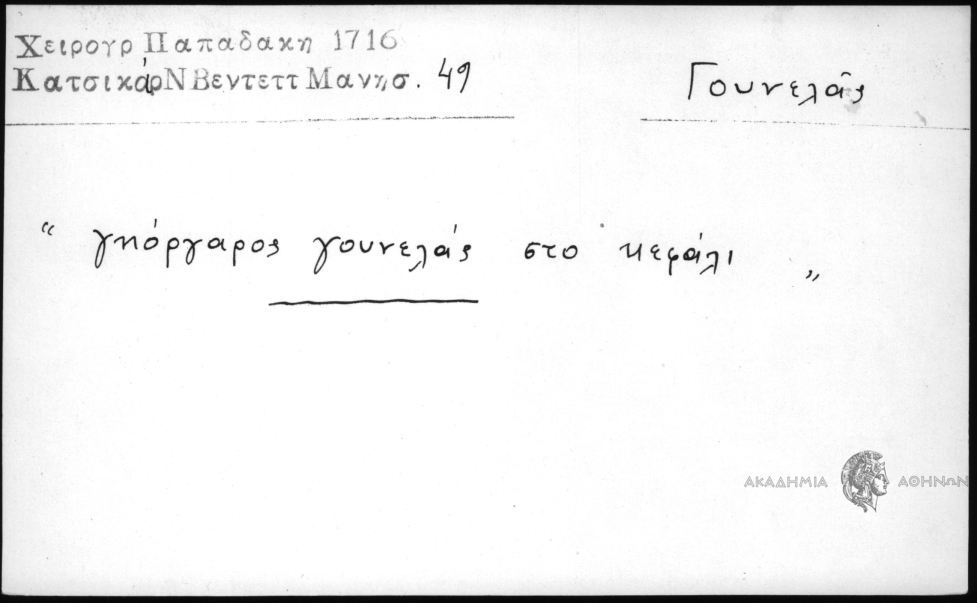 Χειρογρ Παπαδακη 1716
ΚατσικάρΝ Βεντεττ Μανησ. 49
Γουνελᾶς
“ γκόργαρος γουνελάς στο κεφάλι „
ΑΚΑΔΗΜΙΑ ΑΘΗΝΩΝ